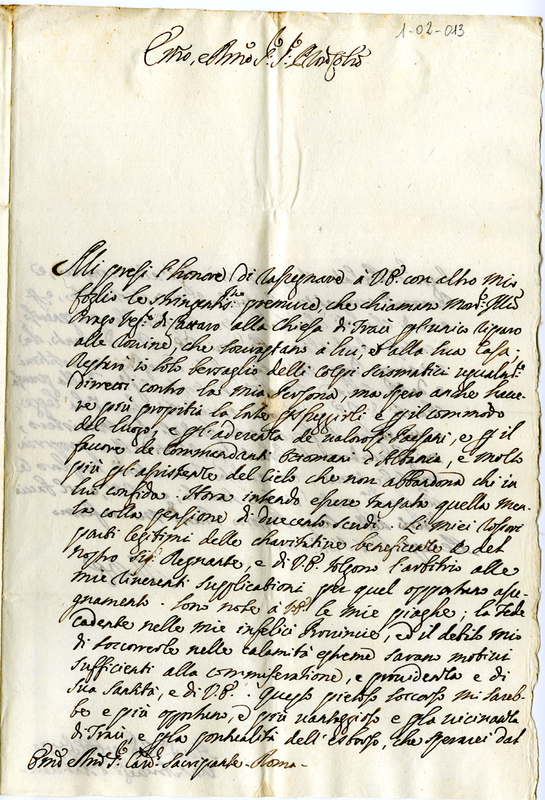 1-02-013
Emo, e Rmo Sr. Sr. Pron Colmo
Mi presi l'honore di rassegnare à V.E. con altro mio
foglio le stringentme premure, che chiaman Monr. Ill
Drago Vesco. di Cattaro alla Chiesa di Traù per unico riparo
alle rouine, che sourastano à lui, et alla sua Casa;
Restarò io solo bersaglio delli colpi scismatici ugualmte
diretti contro la mia Persona, ma spero anche hauer
più propitia la sorte per sfuggirli e per il commodo
del luogo, e per l'aderenza de valorosi Paesani, e per il
fauore de Commendanti ottomani d'Albania, e molto
più per l'assistenza del Cielo che non abbandona chi in
lui confida. Hora intendo essere tassata quella Men-
sa colla pensione di duecento scudi. Li miei rossori
parti legitimi delle charitatiue beneficenze del
nostro Sige. Regnante, e di V.E. tolgono l'arbitrio alle
mie riuerenti supplicationi per quel opportuno asse-
gnamento. Sono note à V.E. le mie piaghe; la Fede
cadente nelle mie infelici Prouincie, ed il debito mio
di soccorrerle nelle calamità estreme saran motiui
sufficienti alla commiseratione, e prouidenza e di
Sua Santità, e di V.E. Questo pietoso soccorso mi sareb-
be e più opportuno, e più uantaggioso e per la uicinanza
di Traù, e per la pontualità dell'esborso, che sperarei dal
Emo Rmo Sr. Card. Sacripante - Roma -